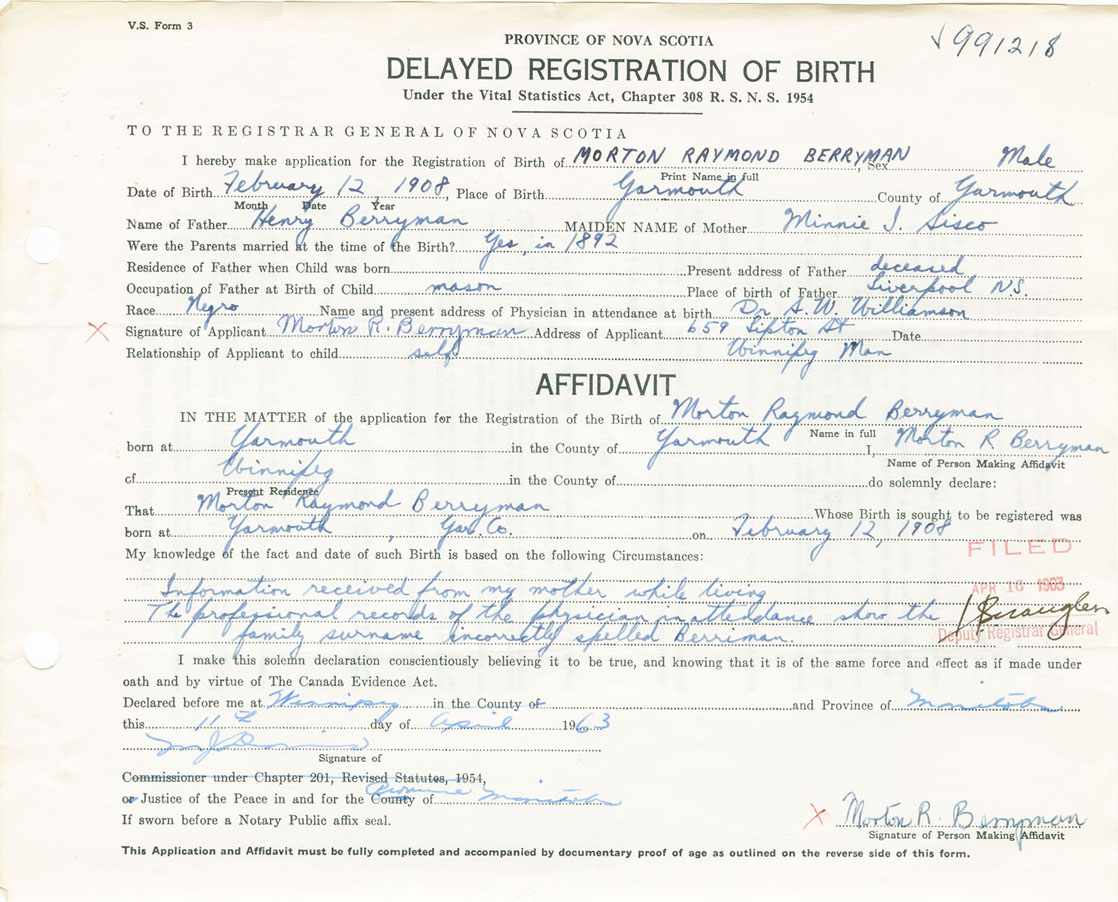 V.S. Form 3
991218
PROVINCE OF NOVA SCOTIA
DELAYED REGISTRATION OF BIRTH
Under the Vital Statistics Act, Chapter 308 R. S. N. S. 1954
TO THE REGISTRAR GENERAL OF NOVA SCOTIA
I hereby make application for the Registration of Birth of MORTON RAYMOND BERRYMAN, Sex Male
Print Name in full
Date of Birth February 12 1908, Place of Birth Yarmouth County of Yarmouth
Month Date Year
Name of Father Henry Berryman MAIDEN NAME of Mother Minnie J. Sisco
Were the Parents married at the time of the Birth? Yes, in 1892
Residence of Father when Child was born Present address of Father deceased
Occupation of Father at Birth of Child mason Place of birth of Father Liverpool N.S.
Race Negro Name and present address of Physician in attendance at birth Dr. S.W. Williamson
X Signature of Applicant Morton R. Berryman Address of Applicant 659 Lipton St Date
Relationship of Applicant to child self Winnipeg Man
AFFIDAVIT
IN THE MATTER of the application for the Registration of the Birth of Morton Raymond Berryman
Name in full
born at Yarmouth in the County of Yarmouth I, Morton R. Berryman
Name of Person Making Affidavit
of Winnipeg in the County of do solemnly declare:
Present Residence
That Morton Raymond Berryman Whose Birth is sought to be registered was
born at Yarmouth, Yar. Co. on February 12, 1908
My knowledge of the fact and date of such Birth is based on the following Circumstances:
FILED
APR 16 1963
Deputy Registrar General
Information received from my mother while living
The professional records of the physician in attendance show the
family surname incorrectly spelled Berriman.
I make this solemn declaration conscientiously believing it to be true, and knowing that it is of the same force and effect as if made under
oath and by virtue of The Canada Evidence Act.
Declared before me at Winnipeg in the County of and Province of Manitoba
this 11th day of April 1963
Signature of
Commissioner under Chapter 201, Revised Statutes, 1954,
or Justice of the Peace in and for the County Province of Manitoba
If sworn before a Notary Public affix seal.
X Morton R. Berryman
Signature of Person Making Affidavit
This Application and Affidavit must be fully completed and accompanied by documentary proof of age as outlined on the reverse side of this form.